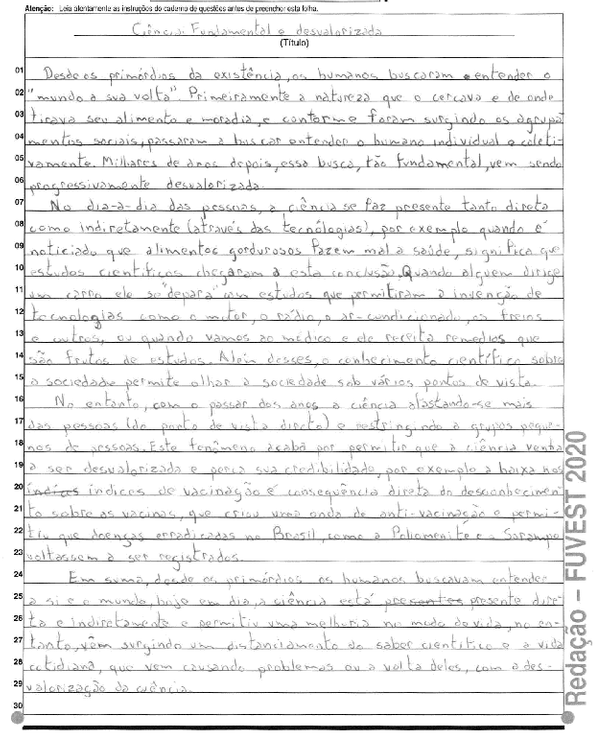 Atenção: Leia atentamente as instruções do caderno de questões antes de preencher esta folha.
Ciência: Fundamental e desvalorizada
(Título)
01 Desde os primórdios da existência, os humanos buscaram entender o
02 "mundo a sua volta". Primeiramente a natureza que o cercava e de onde
03 tirava seu alimento e moradia, e conforme foram surgindo os agrupa
04 mentos sociais, passaram a buscar entender o humano individual e coleti-
05 vamente. Milhares de anos depois, essa busca, tão fundamental, vem sendo
06 progressivamente desvalorizada.
07 No dia-a-dia das pessoas, a ciência se faz presente tanto direta
08 como indiretamente (através das tecnólogias), por exemplo quando é
09 noticiado que alimentos gordurosos fazem mal a saúde, significa que
10 estudos científicos chegaram a esta conclusão. Quando alguem dirige
11 um carro ele se "depara" com estudos que permitiram a invenção de
12 tecnologias como o motor, o rádio, o ar-condicionado, os freios
13 e outros, ou quando vamos ao médico e ele receita remedios que
14 são frutos de estudos. Alem desses, o conhecimento científico sobre
15 a sociedade permite olhar a sociedade sob vários pontos de vista.
16 No entanto, com o passar dos anos a ciência afastando-se mais
17 das pessoas (do ponto de vista direto) e restringindo a grupos peque-
18 nos de pessoas. Este fenômeno acaba por permitir que a ciência venha
19 a ser desvalorizada e perca sua credibilidade, por exemplo a baixa nos
20 índices índices de vacinação é consequência direta do desconhecimen-
21 to sobre as vacinas, que criou uma onda de anti-vacinação e permi-
22 tiu que doenças erradicadas no Brasil, como a e o Sarampo
23 voltassem a ser registrados.
24 Em suma, desde os primórdios os humanos buscavam entender
25 a si e o mundo, hoje em dia, a ciência está presente dire-
26 ta e indiretamente e permitiu uma melhuria no modo de vida, no en-
27 tanto, vêm surgindo um distanciamento do saber científico e a vida
28 cotidiana, que vem causando problemas ou a volta deles, com a des-
29 valorização da ciência.
30
Redação – FUVEST 2020